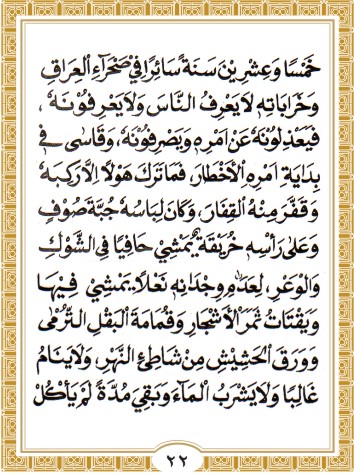 خَمْسًا وَعِشْرِيْنَ سَنَةً سَائِرًا فِيْ صَحْرَآءِ الْعِرَاقِ
وَخَرَابَاتِهِ لَا يَعْرِفُ النَّاسَ وَلَا يَعْرِفُوْنَهُ ،
فَيَعْذِلُوْنَهُ عَنْ اَمْرِهِ وَيَصْرِفُوْنَهُ ، وَقَاسٰى فِى
بِدَايَةِ اَمْرِهِ الْاَخْطَارَ، فَمَا تَرَكَ هَوْلًا اِلَّا رَكِبَهُ
وَقَفَّرَ مِنْهُ الْقِفَارَ، وَكَانَ لِبَاسُهُ جُبَّةَ صُوْفٍ
وَعَلٰى رَأْسِهِ خُرَيْقَةٌ يَمْشِيْ حَافِيًا فِى الشَّوْكِ
وَالْوَعْرِ، لِعَدَمِ وِجْدَانِهِ نَعْلًا. يَمْشِيْ فِيْهَا
وَيَقْتَاتُ ثَمَرَ الْاَشْجَارِ وَقُمَامَةَ الْبَقْلِ التُّرْمٰى
وَوَرَقَ الْحَشِيْشِ مِنْ شَاطِئِ النَّهْرِ، وَلَا يَنَامُ
غَالِبًا وَلَا يَشْرَبُ الْمَآءَ وَبَقِيَ مُدَّةً لَمْ يَأْكُلْ
٢٢